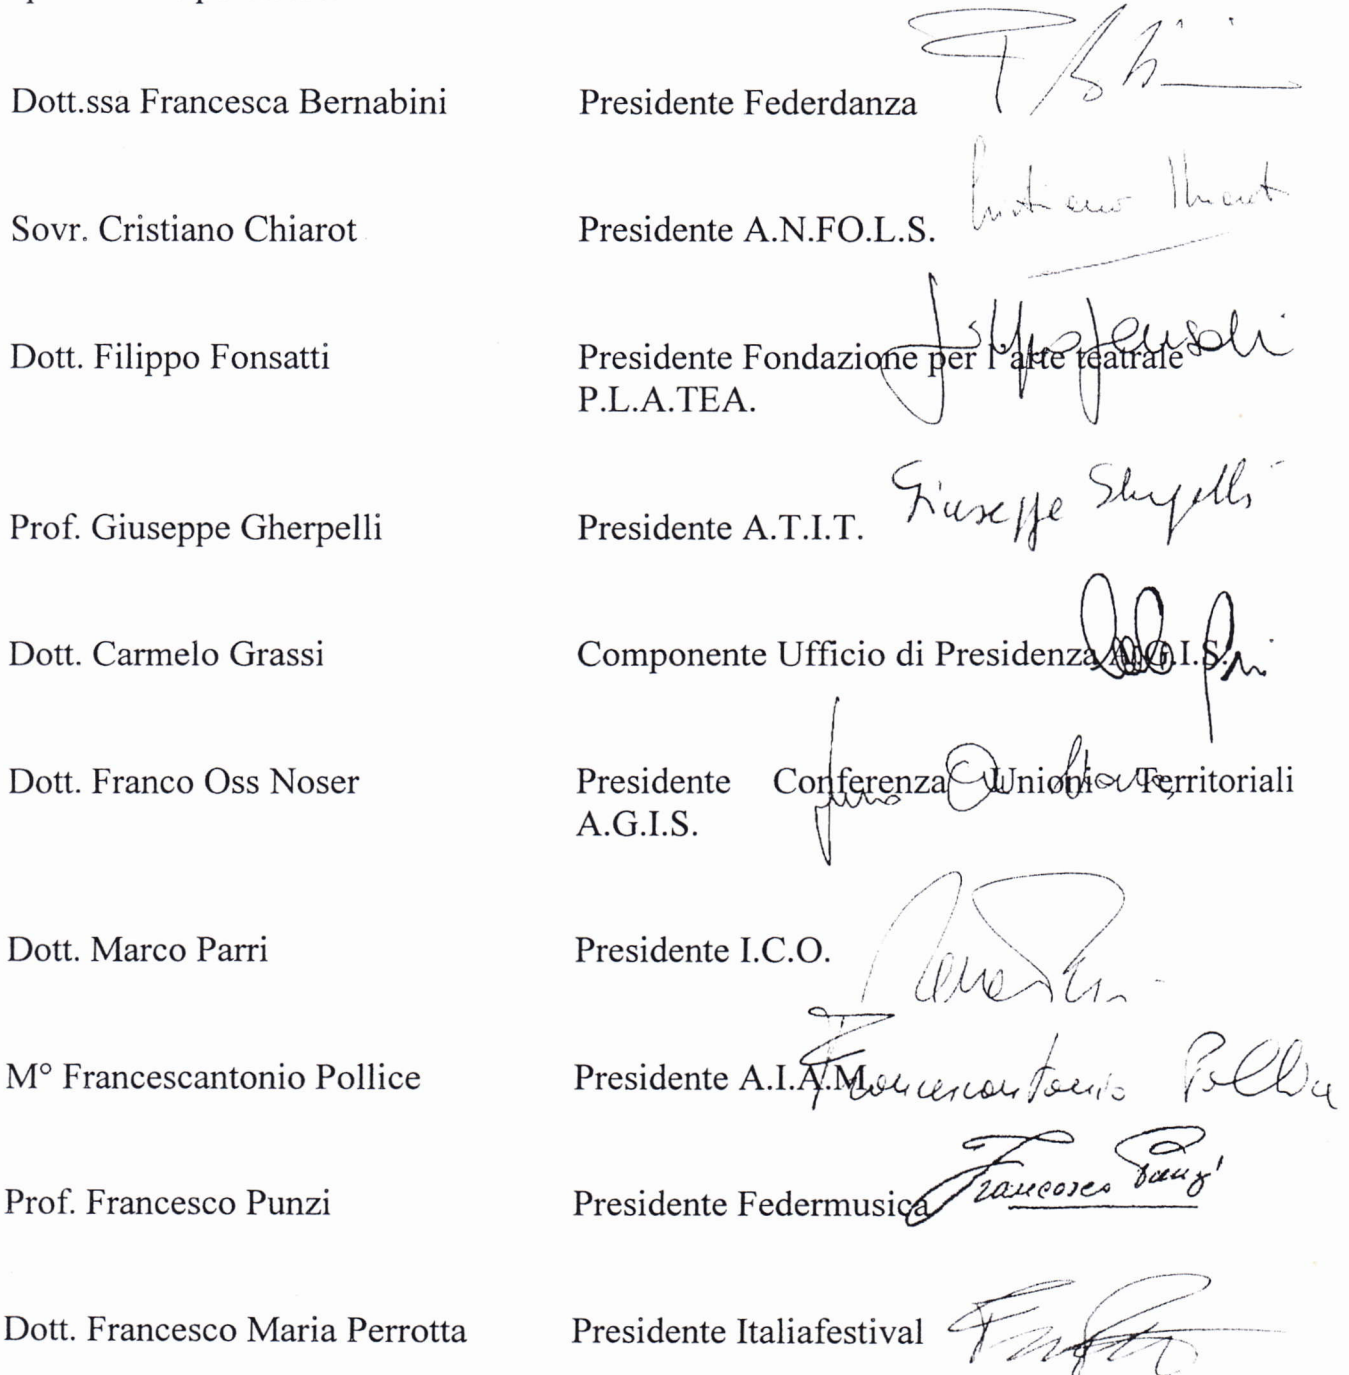 Dott.ssa Francesca Bernabini Presidente Federdanza
Sovr. Cristiano Chiarot Presidente A.N.FO.L.S.
Dott. Filippo Fonsatti Presidente Fondazione per l'arte teatrale
P.L.A.TEA.
Prof. Giuseppe Gherpelli Presidente A.T.I.T.
Giuseppe Gherpelli
Dott. Carmelo Grassi Componente Ufficio di Presidenza A.G.I.S.
Dott. Franco Oss Noser Presidente Conferenza Unioni Territoriali
A.G.I.S.
Dott. Marco Parri Presidente I.C.O.
M° Francescantonio Pollice Presidente A.I.A.M.
Francescantonio Pollice
Prof. Francesco Punzi Presidente Federmusica
Francesco Punzi
Dott. Francesco Maria Perrotta Presidente Italiafestival